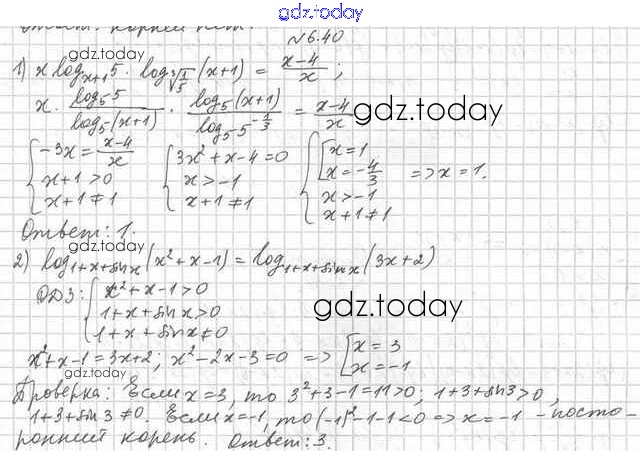 gdz.today
Ответ: корней нет.
gdz.today
№6.40
1) x log_{x+1} 5 · log_{∛(1/5)} (x+1) = (x-4)/x ;
x · (log_5 5)/(log_5 (x+1)) · (log_5 (x+1))/(log_5 5^{-1/3}) = (x-4)/x
gdz.today
{ -3x = (x-4)/x { 3x² + x - 4 = 0 { [ x = 1
x+1 > 0 x > -1 x = -4/3 => x = 1.
x+1 ≠ 1 x+1 ≠ 1 x > -1
x+1 ≠ 1
Ответ: 1.
gdz.today
2) log_{1+x+sin x} (x²+x-1) = log_{1+x+sin x} (3x+2)
ОДЗ: { x²+x-1 > 0
1+x+sin x > 0
1+x+sin x ≠ 0
gdz.today
x²+x-1 = 3x+2; x²-2x-3 = 0 => [ x = 3
x = -1
Проверка: Если x = 3, то 3²+3-1 = 11 > 0; 1+3+sin3 > 0,
1+3+sin3 ≠ 0. Если x = -1, то (-1)²-1-1 < 0 => x = -1 - посто-
ронний корень. Ответ: 3.
gdz.today